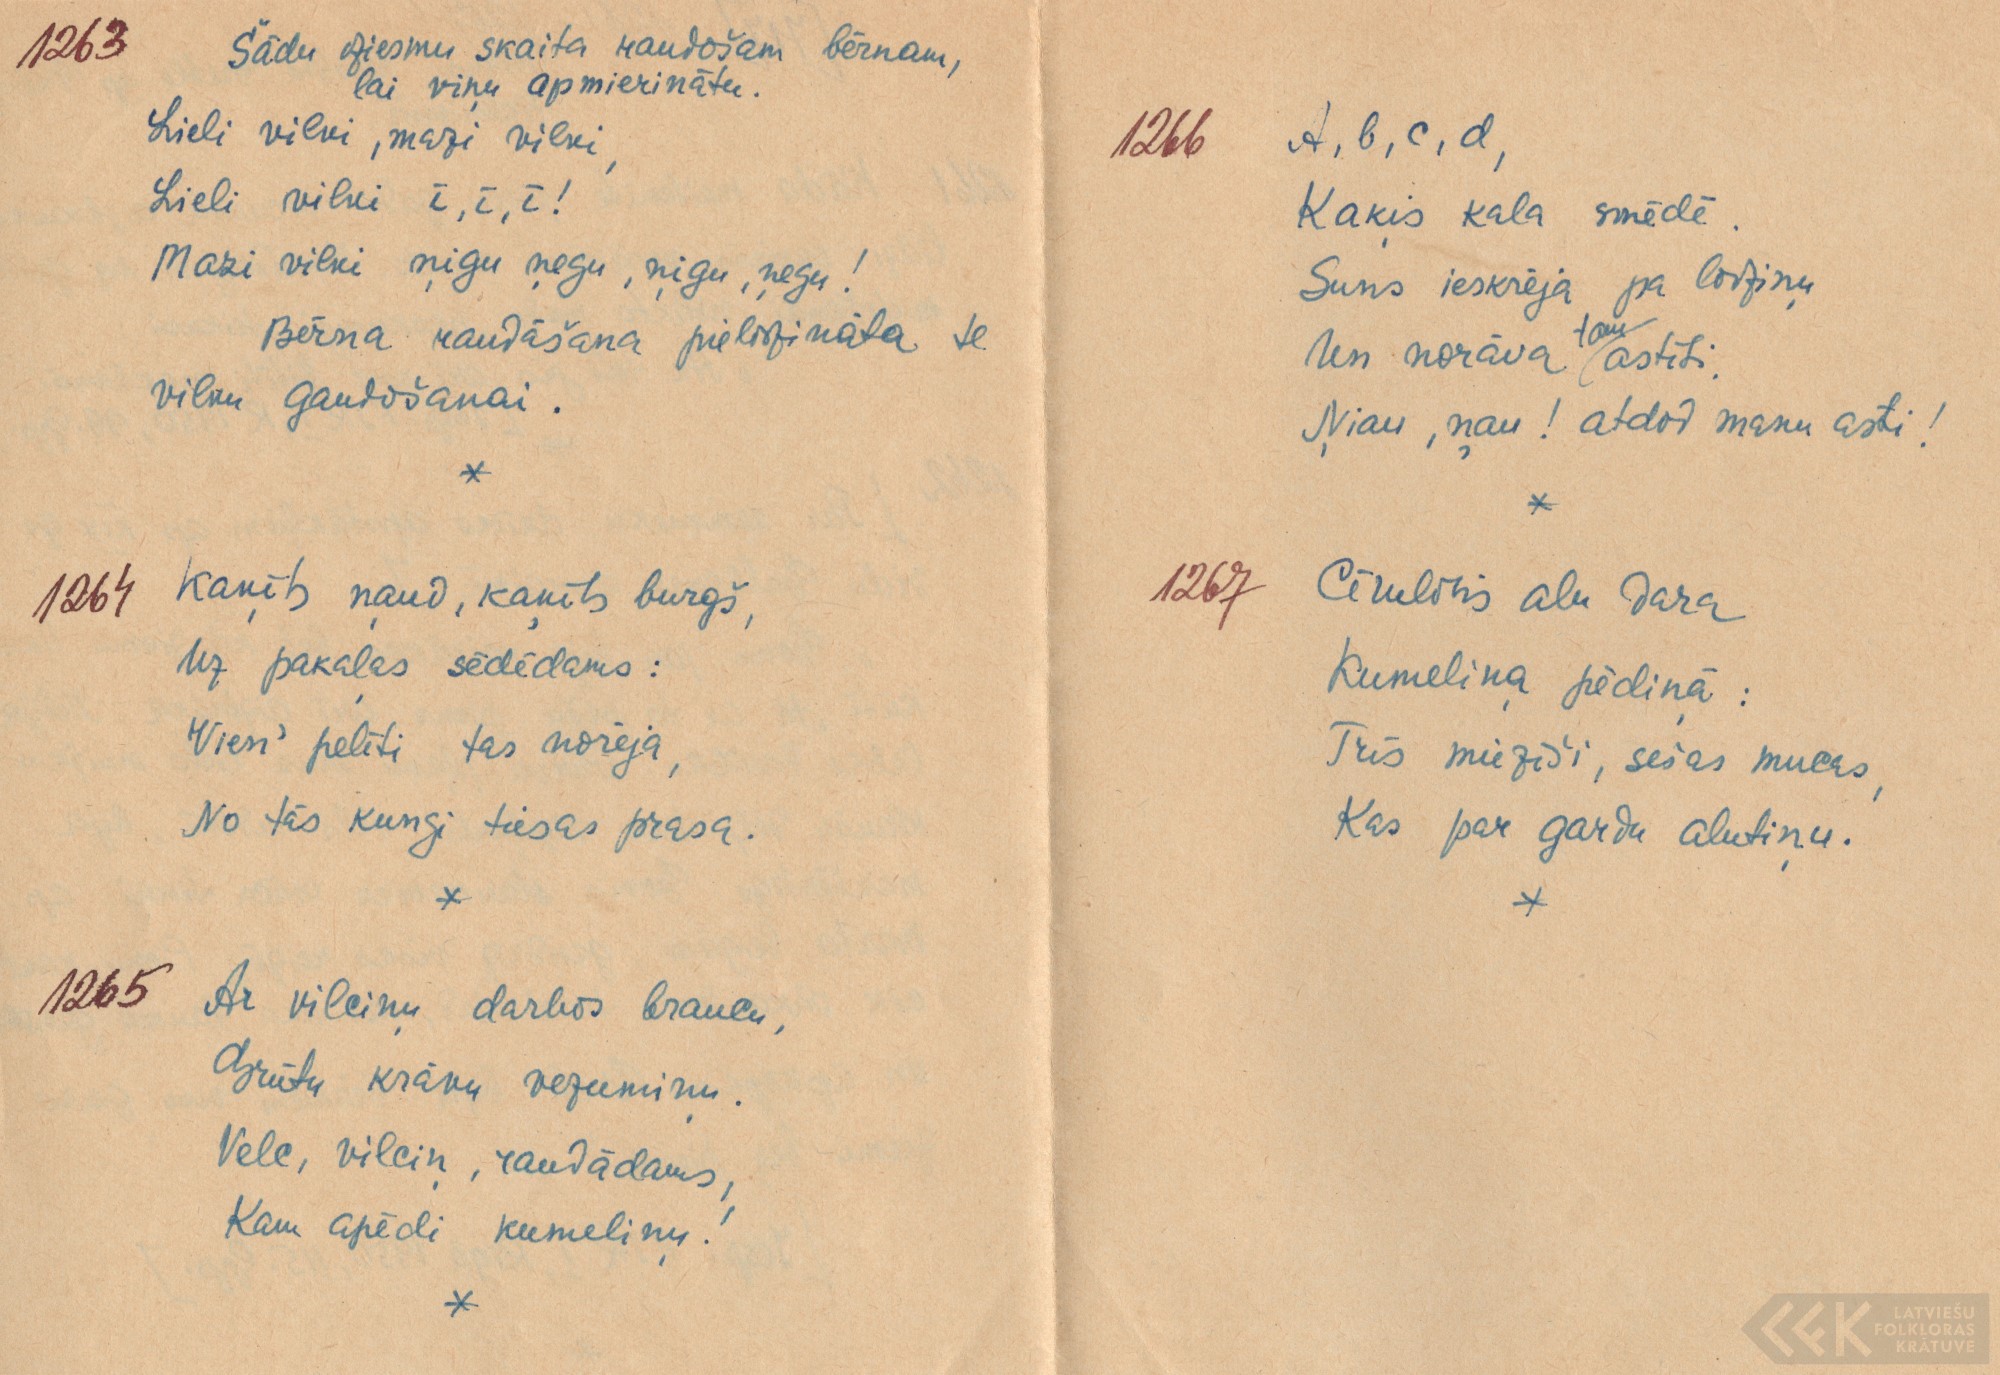 1263 Šādu dziesmu skaita raudošam bērnam,
lai viņu apmierinātu.
Lieli vilki, mazi vilki,
Lieli vilki ī, ī, ī!
Mazi vilki ņigu ņegu, ņigu, ņegu!
Bērna raudāšana pielīdzināta te
vilku gaudošanai.
*
1264 Kaķīts ņaud, kaķīts burgš,
Uz pakaļas sēdēdams:
Vien' pelīti tas norēja,
No tās kungi tiesas prasa.
*
1265 Ar vilciņu darbos braucu,
Grūtu krāvu vezumiņu.
Velc, vilciņ, raudādams,
Kam apēdi kumeliņu!
*
1266 A, b, c, d,
Kaķis kala smēdē.
Suns ieskrēja pa lodziņu
Un norāva tam astīti.
Ņiau, ņau! atdod manu asti!
*
1267 Cīrulītis alu dara
Kumeliņa pēdiņā:
Trīs miezīši, sešas mucas,
Kas par gardu alutiņu.
*
LATVIEŠU
FOLKLORAS
KRĀTUVE